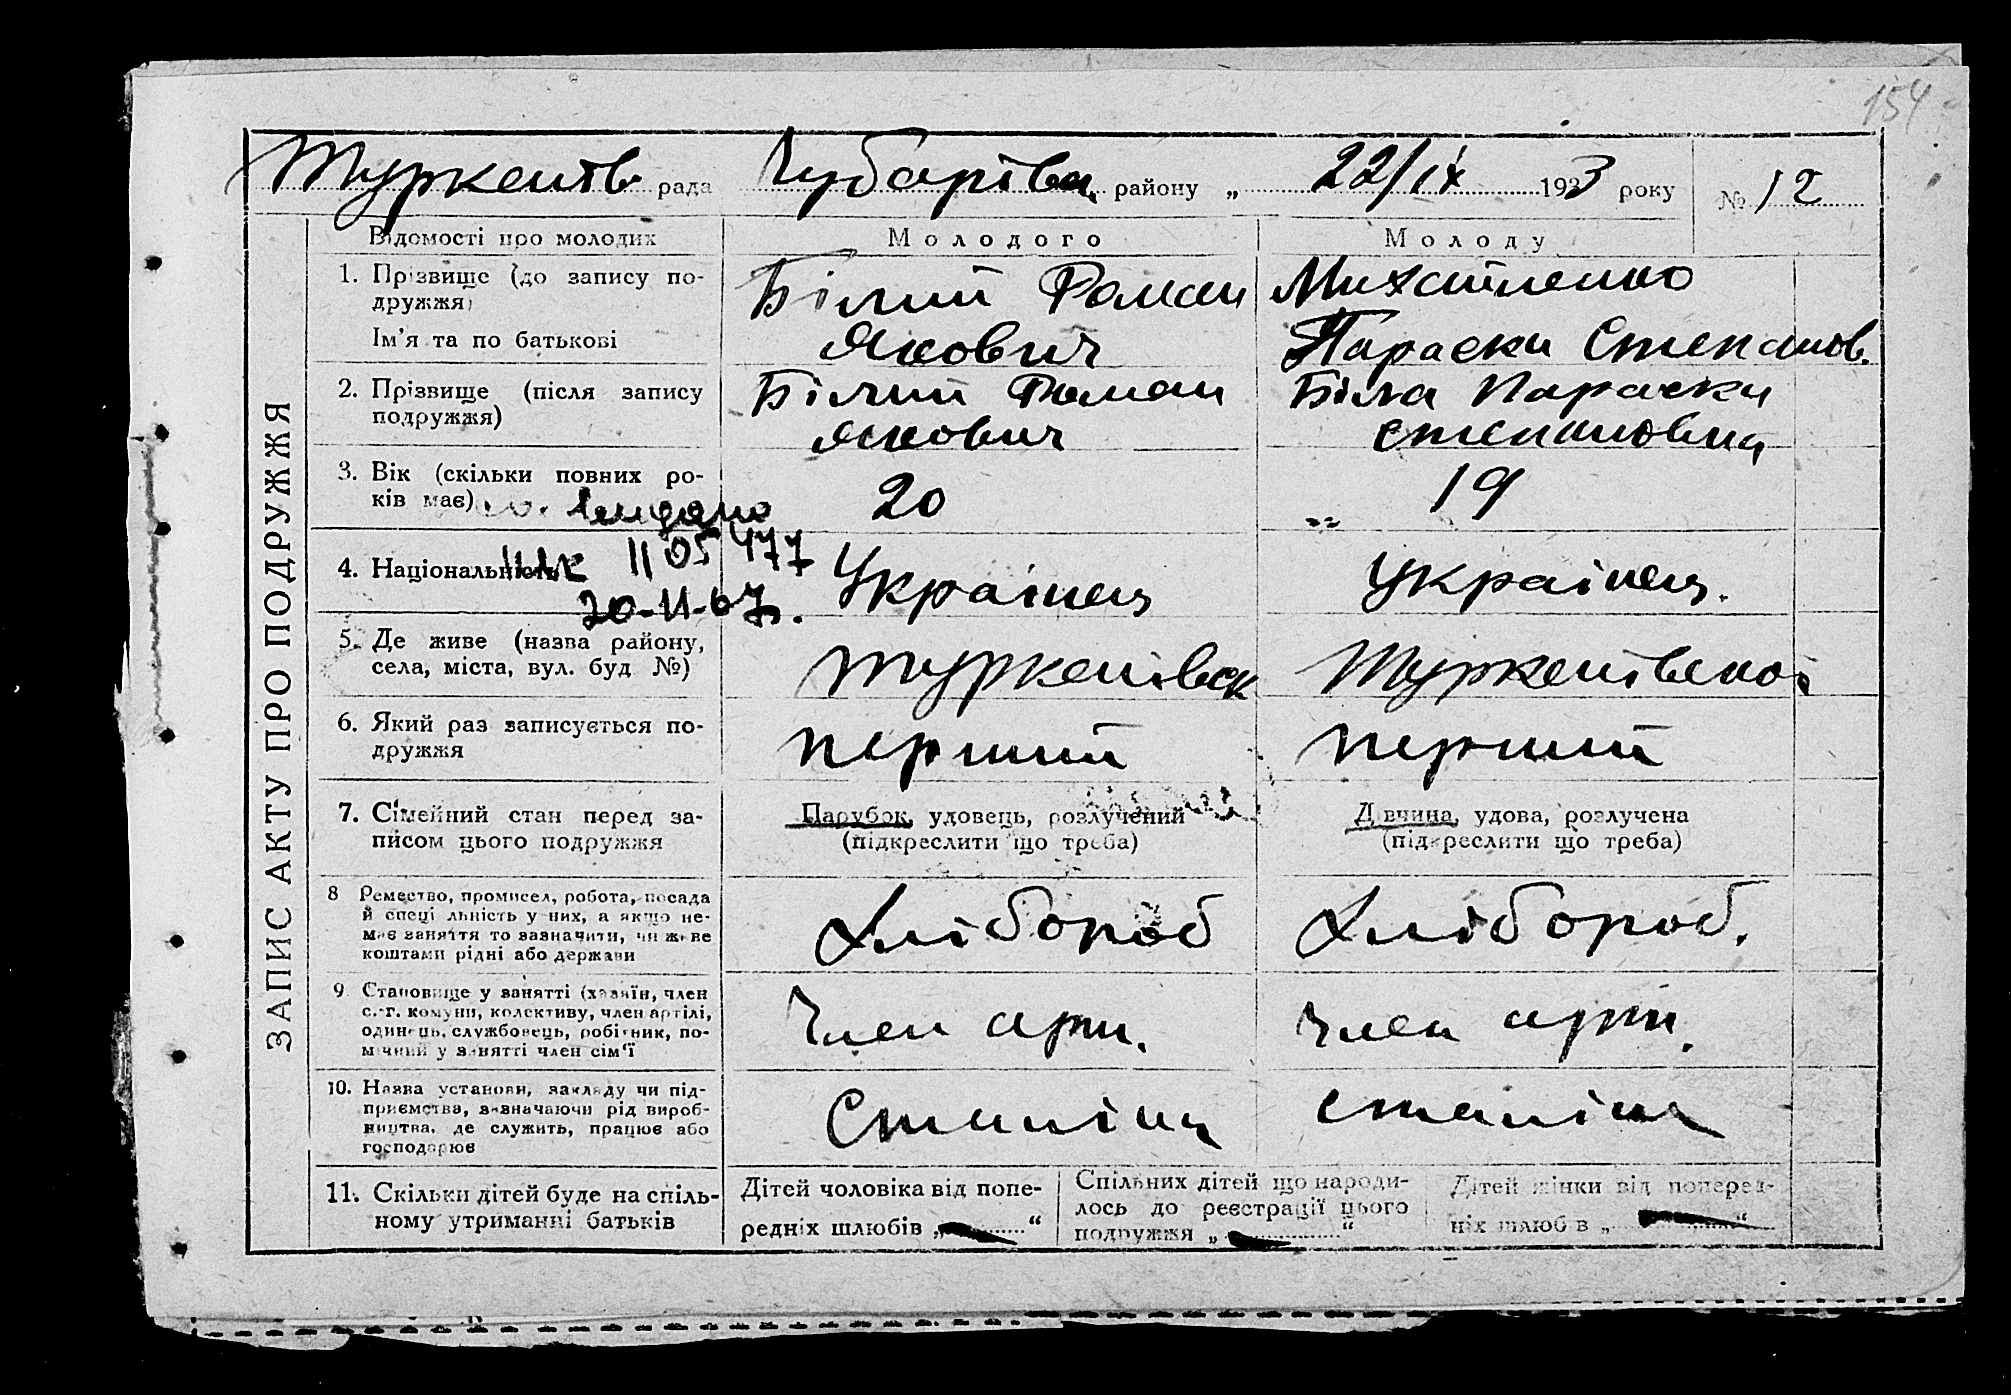 154
Туркенів. рада Чубарівськ. району „ 22/IX 1933 року № 12
ЗАПИС АКТУ ПРО ПОДРУЖЖЯ
Відомості про молодих
Молодого
Молоду
1. Прізвище (до запису по-
дружжя)
Ім'я та по батькові
Білий Роман
Якович
Михайленко
Параски Степанов.
2. Прізвище (після запису
подружжя)
Білий Роман
Якович
Біла Параски
Степановна
3. Вік (скільки повних ро-
ків має)
20
19
видано
11 05 477
20-11-67г.
4. Національність
Українец
Українец.
5. Де живе (назва району,
села, міста, вул. буд №)
Туркенівск
Туркенівской
6. Який раз записується по-
дружжя
перший
перший
7. Сімейний стан перед за-
писом цього подружжя
Парубок, удовець, розлучений
(підкреслити що треба)
Дівчина, удова, розлучена
(підкреслити що треба)
8 Ремество, промисел, робота, посада
й спеціальність у них, а якщо не-
має заняття то зазначити, чи живе
коштами рідні або держави
Хлібороб
Хлібороб.
9. Становище у занятті (хазяїн, член
с.-г. комуни, колективу, член артілі,
одинець, службовець, робітник, по-
мічний у занятті член сім'ї
Член арт.
Член арт.
10. Назва установи, закладу чи під-
приємства, зазначаючи рід вироб-
ництва, де служить, працює або
господарює
Сталіна
Сталіна
11. Скільки дітей буде на спіль-
ному утриманні батьків
Дітей чоловіка від попе-
редніх шлюбів „ “
Спільних дітей що народи-
лось до реєстрації цього
подружжя „ “
Дітей жінки від поперед-
ніх шлюбів „ “